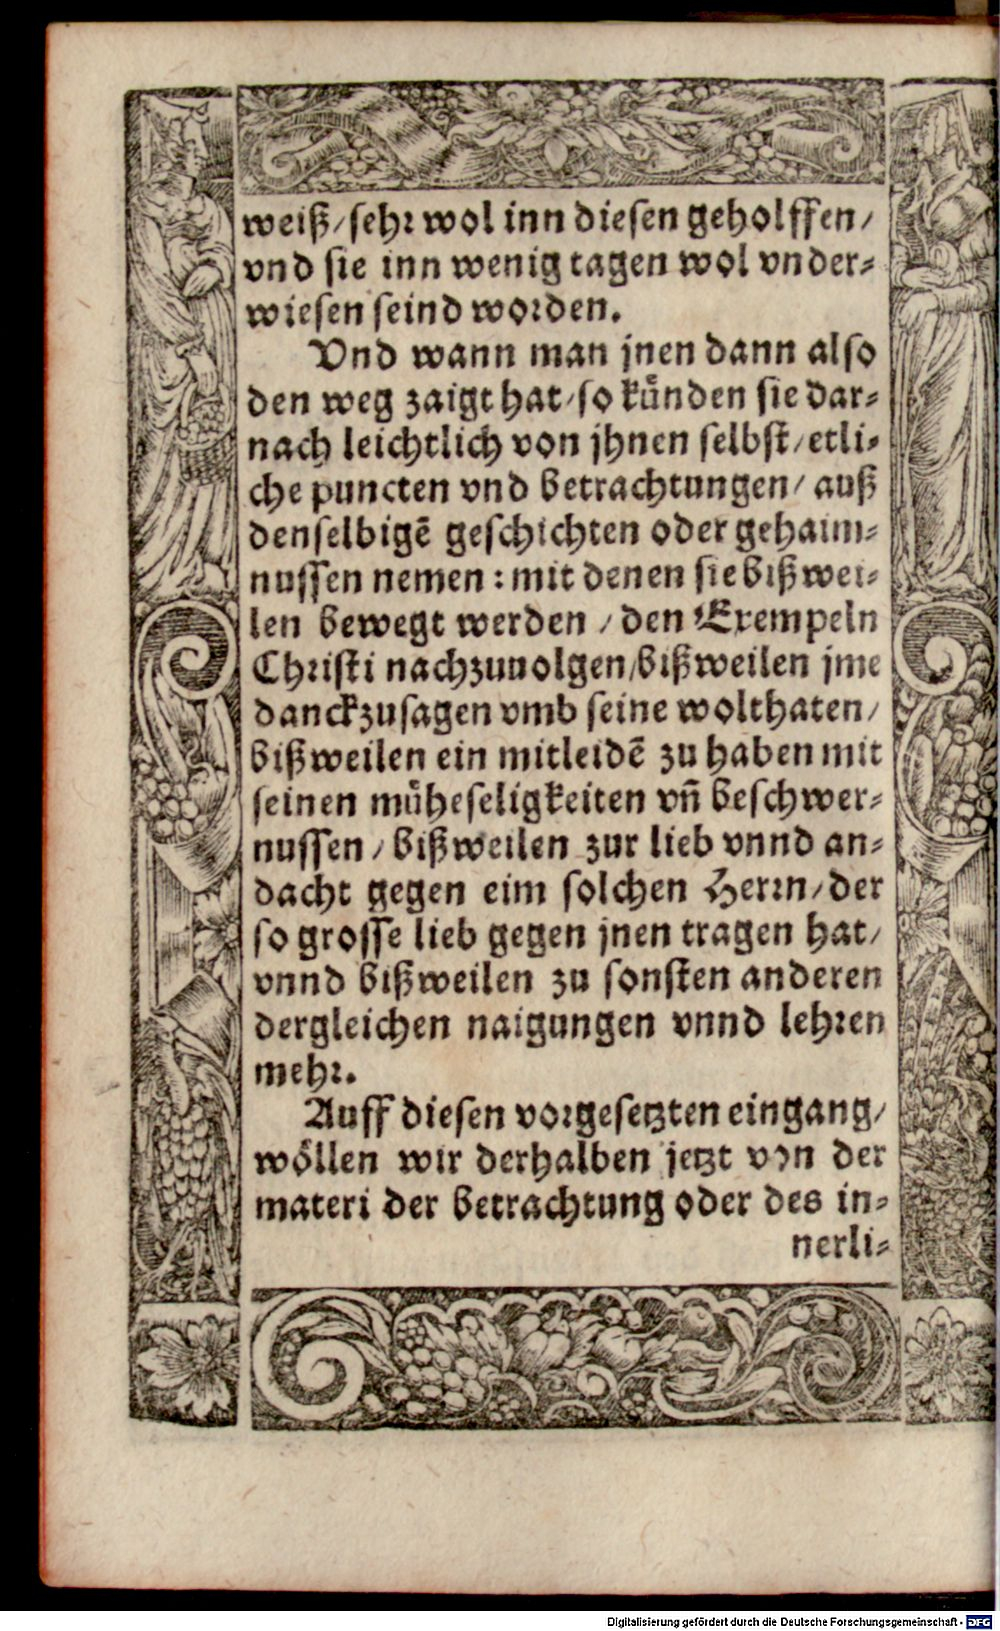 weiß/sehr wol inn diesen geholffen/
vnd sie inn wenig tagen wol vnder⸗
wiesen seind worden.
Vnd wann man jnen dann also
den weg zaigt hat/so künden sie dar⸗
nach leichtlich von jhnen selbst/etli⸗
che puncten vnd betrachtungen/ auß
denselbigẽ geschichten oder gehaim⸗
nussen nemen: mit denen sie bißwei⸗
len bewegt werden / den Exempeln
Christi nachzuuolgen/bißweilen jme
danckzusagen vmb seine wolthaten/
bißweilen ein mitleidẽ zu haben mit
seinen müheseligkeiten vñ beschwer⸗
nussen / bißweilen zur lieb vnnd an⸗
dacht gegen eim solchen Herrn/der
so grosse lieb gegen jnen tragen hat/
vnnd bißweilen zu sonsten anderen
dergleichen naigungen vnnd lehren
mehr.
Auff diesen vorgesetzten eingang/
wöllen wir derhalben jetzt von der
materi der betrachtung oder des in⸗
nerli⸗
Digitalisierung gefördert durch die Deutsche Forschungsgemeinschaft - DFG